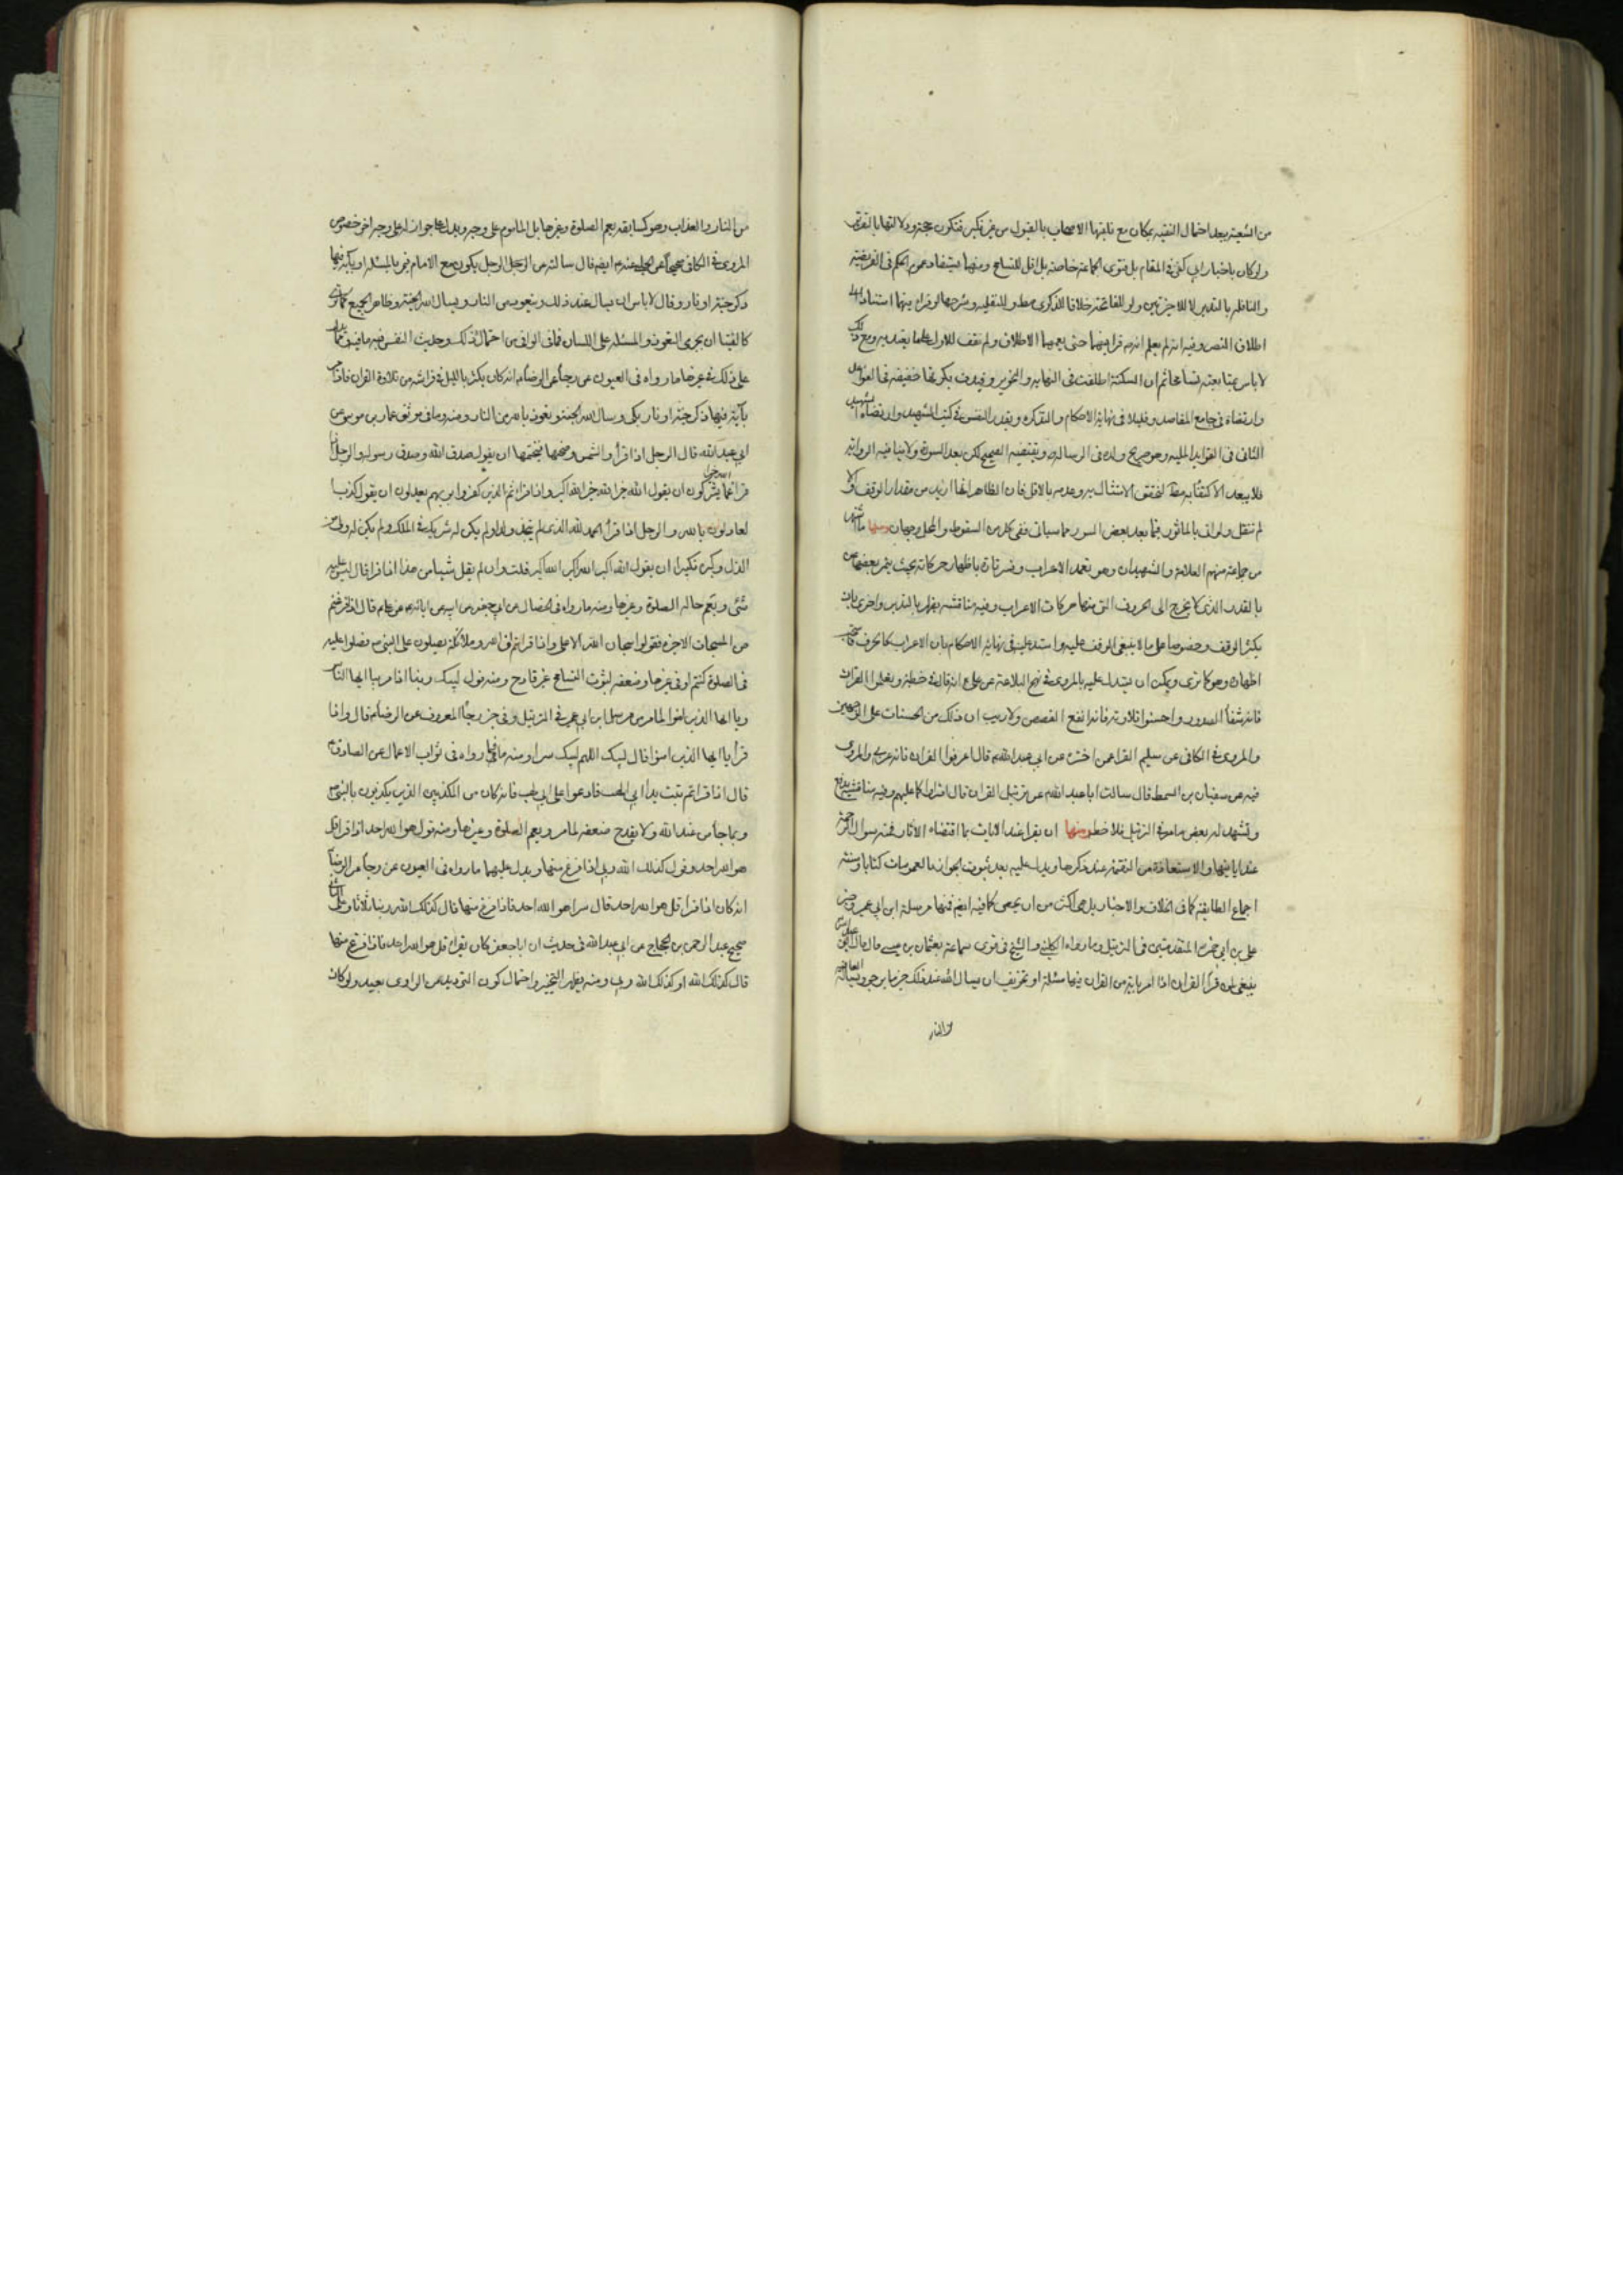 من الشيعة بعد احتمال التقيه بمكان مع تلقيها الاصحاب بالقبول من غير نكير فتكون حجة ودلالتها بالتقرير
ولو كان باخبار ابي كفى في المقام بل فتوى الجماعة خاصة بل اقل للتسامح ومنهما يستفاد عموم الحكم في الفريضة
والنافلة بالتقديرين لا للاخرتين ولو للفاتحة خلافا للذكرى والنفلية وشرحها لو قراء فيهما استنادا الى
اطلاق النص وفيه انه لم يعلم انه قرا فيهما حتى يعمهما الاطلاق ولم نقف للاول على ما يعتد به ومع ذلك
لا باس بمتابعته تسامحا ثم ان السكتة اطلقت في النهايه والتحرير وقيدت بكونها خفيفة في
وارتضاه في جامع المقاصد وقليلا في نهاية الاحكام والتذكره وبقدر النفس في كتب الشهيد وارتضاه الشهيد
الثاني في الفوايد المليه وهو صريح ولده في الرساله ويقتضيه الصحيح لكن بعد السورة ولا ينافيه الرواية
فلا يبعد الاكتفاء به لتحقق الامتثال به وعدمه بالاقل فان الظاهر انها ازيد من مقدار الوقف والا
لم تنقل ولو اتى بالماثور فيما بعد بعض السور مما سياتي ففي السقوط والمحل وجهان ومنها ما اشتهر
من جماعة منهم العلامة والشهيدان وهو تعمد الاعراب وفسر تارة باظهار حركاته بحيث يتميز بعضها من
بالقدر الذي لا يخرج الى الحروف التي منها حركات الاعراب وفيه مناقشة واخرى بان
يكثر الوقف وخصوصا على ما لا ينبغي الوقف عليه واستدل عليه في نهاية الاحكام بان الاعراب كالحرف فاستحب
اظهاره وهو كما ترى ويمكن ان يستدل عليه بالمروي في نهج البلاغة عن علي ع انه قال في خطبة وتعلموا القران
فانه شفاء الصدور واحسنوا تلاوته فانه انفع القصص ولا ريب ان ذلك من الحسنات على الوجهين
والمروي في الكافي عن سليم الفرا عمن اخبره عن ابي عبد الله قال اعربوا القران فانه عربي والمروي
فيه عن سفيان بن السمط قال سالت ابا عبد الله عن ترتيل القران قال
ويشهد له بعض ما مر في الترتيل فلا خطر ومنها ان يقرا عند الايات بما اقتضاه الاثار فمنه سوال الرحمة
عند اياتها والاستعاذة من النقمة عند ذكرها ويدل عليه بعد ثبوت الجواز بالعمومات كتابا وسنة
اجماع الطايفة كما في الخلاف والاخبار بل هي اكثر من ان يحصى كما فيه ايضا فمنها مرسلة ابن ابي عمير وخبر
علي بن ابي حمزة المتقدمتين في الترتيل وما رواه الكليني والشيخ في قوى سماعة بعثمان بن عيسى قال قال
ينبغي لمن قرا القران اذا مر باية من القران فيها مسئلة او تخويف ان يسال الله عند ذلك خير ما يرجو ويساله العافية
من النار
من النار والعذاب وهو كسابقه يعم الصلوة وغيرها بل الماموم على وجه ويدل على جوازه له على وجه اخر خصوص
المروي في الكافي صحيحا عن الحلبي عنه ايضا قال سالته عن الرجل يكون مع الامام فيمر بالمسئلة او باية فيها
ذكر جنة او نار وقال لا باس ان يسال عند ذلك ويتعوذ من النار ويسال الله الجنة وظاهر الجميع كما ترى
كالفتيا ان يجري التعوذ والمسئلة على اللسان فما في الوافي من احتمال ذلك وحديث النفس فيه ما فيه ومما يدل
على ذلك في غيرها ما رواه في العيون عن رجا عن الرضا انه كان يكثر بالليل في فراشه من تلاوة القران فاذا مر
باية فيها ذكر جنة او نار بكى وسال الله الجنة ويعوذ بالله من النار ومنه وما في موثق عمار بن موسى عن
ابي عبد الله قال الرجل اذا قرأ والشمس وضحيها فيختمها ان يقول صدق الله وصدق رسوله والرجل اذا
قرا الله خير اما يشركون ان يقول الله خير الله خير الله اكبر واذا قرا ثم الذين كفروا بربهم يعدلون ان يقول كذب
العادلون بالله والرجل اذا قرأ الحمد لله الذي لم يتخذ ولدا ولم يكن له شريك في الملك ولم يكن له ولي من
الذل وكبره تكبيرا ان يقول الله اكبر الله اكبر الله اكبر قلت وان لم يقل شيئا من هذا اذا قرا قال ليس عليه
شئ ويعم حاله الصلوة وغيرها ومنه ما رواه في الخصال عن ابي جعفر عن ابيه عن ابائه عن علي قال اذا قرءتم
من المسبحات الاخيرة فقولوا سبحان الله الاعلى واذا قراتم ان الله وملائكته يصلون على النبي فصلوا عليه
في الصلوة كنتم او في غيرها وضعفه لثبوت التسامح غير قادح ومنه قول لبيك ربنا اذا مر بيا ايها الناس
ويا ايها الذين امنوا لما مر من مرسل ابن ابي عمير في الترتيل وفي خبر رجا المعروف عن الرضا قال واذا
قرأ يا ايها الذين امنوا قال لبيك اللهم لبيك سرا ومنه ما رواه في ثواب الاعمال عن الصادق
قال اذا قراتم تبت يدا ابي لهب فادعوا على ابي لهب فانه كان من المكذبين الذين يكذبون بالنبي
وبما جاء من عند الله ولا يقدح ضعفه لما مر ويعم الصلوة وغيرها ومنه قول هو الله احد اذا قرا قل
هو الله احد وقول كذلك الله ربي اذا فرغ منها ويدل عليهما ما رواه في العيون عن رجا عن الرضا
انه كان اذا قرا قل هو الله احد قال سرا هو الله احد فاذا فرغ منها قال كذلك الله ربنا ثلاثا
صحيح عبد الرحمن بن الحجاج عن ابي عبد الله في حديث ان ابا جعفر كان يقراء قل هو الله احد فاذا فرغ منها
قال كذلك الله او كذلك الله ربي ومنه يظهر التخيير واحتمال كون الترديد من الراوي بعيد ولو كان